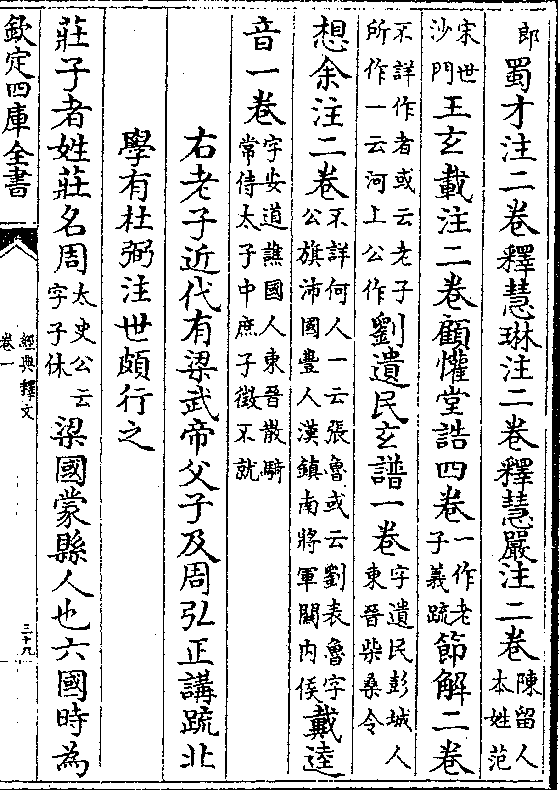 郎蜀才注二卷釋慧琳注二卷釋慧嚴注二卷陳留人本姓范
宋世沙門王玄載注二卷顧懽堂誥四卷一作老子義疏節解二卷
不詳作者或云老子所作一云河上公作劉遺民玄譜一卷字遺民彭城人東晉柴桑令
想余注二卷不詳何人一云張魯或云劉表魯字公旗沛國豊人漢鎮南將軍關內侯戴逵
音一卷字安道譙國人東晉散騎常侍太子中庶子徵不就
右老子近代有梁武帝父子及周弘正講疏北
學有杜弼注世頗行之
莊子者姓莊名周太史公云字子休梁國蒙縣人也六國時為
欽定四庫全書
經典釋文
卷一
三十九